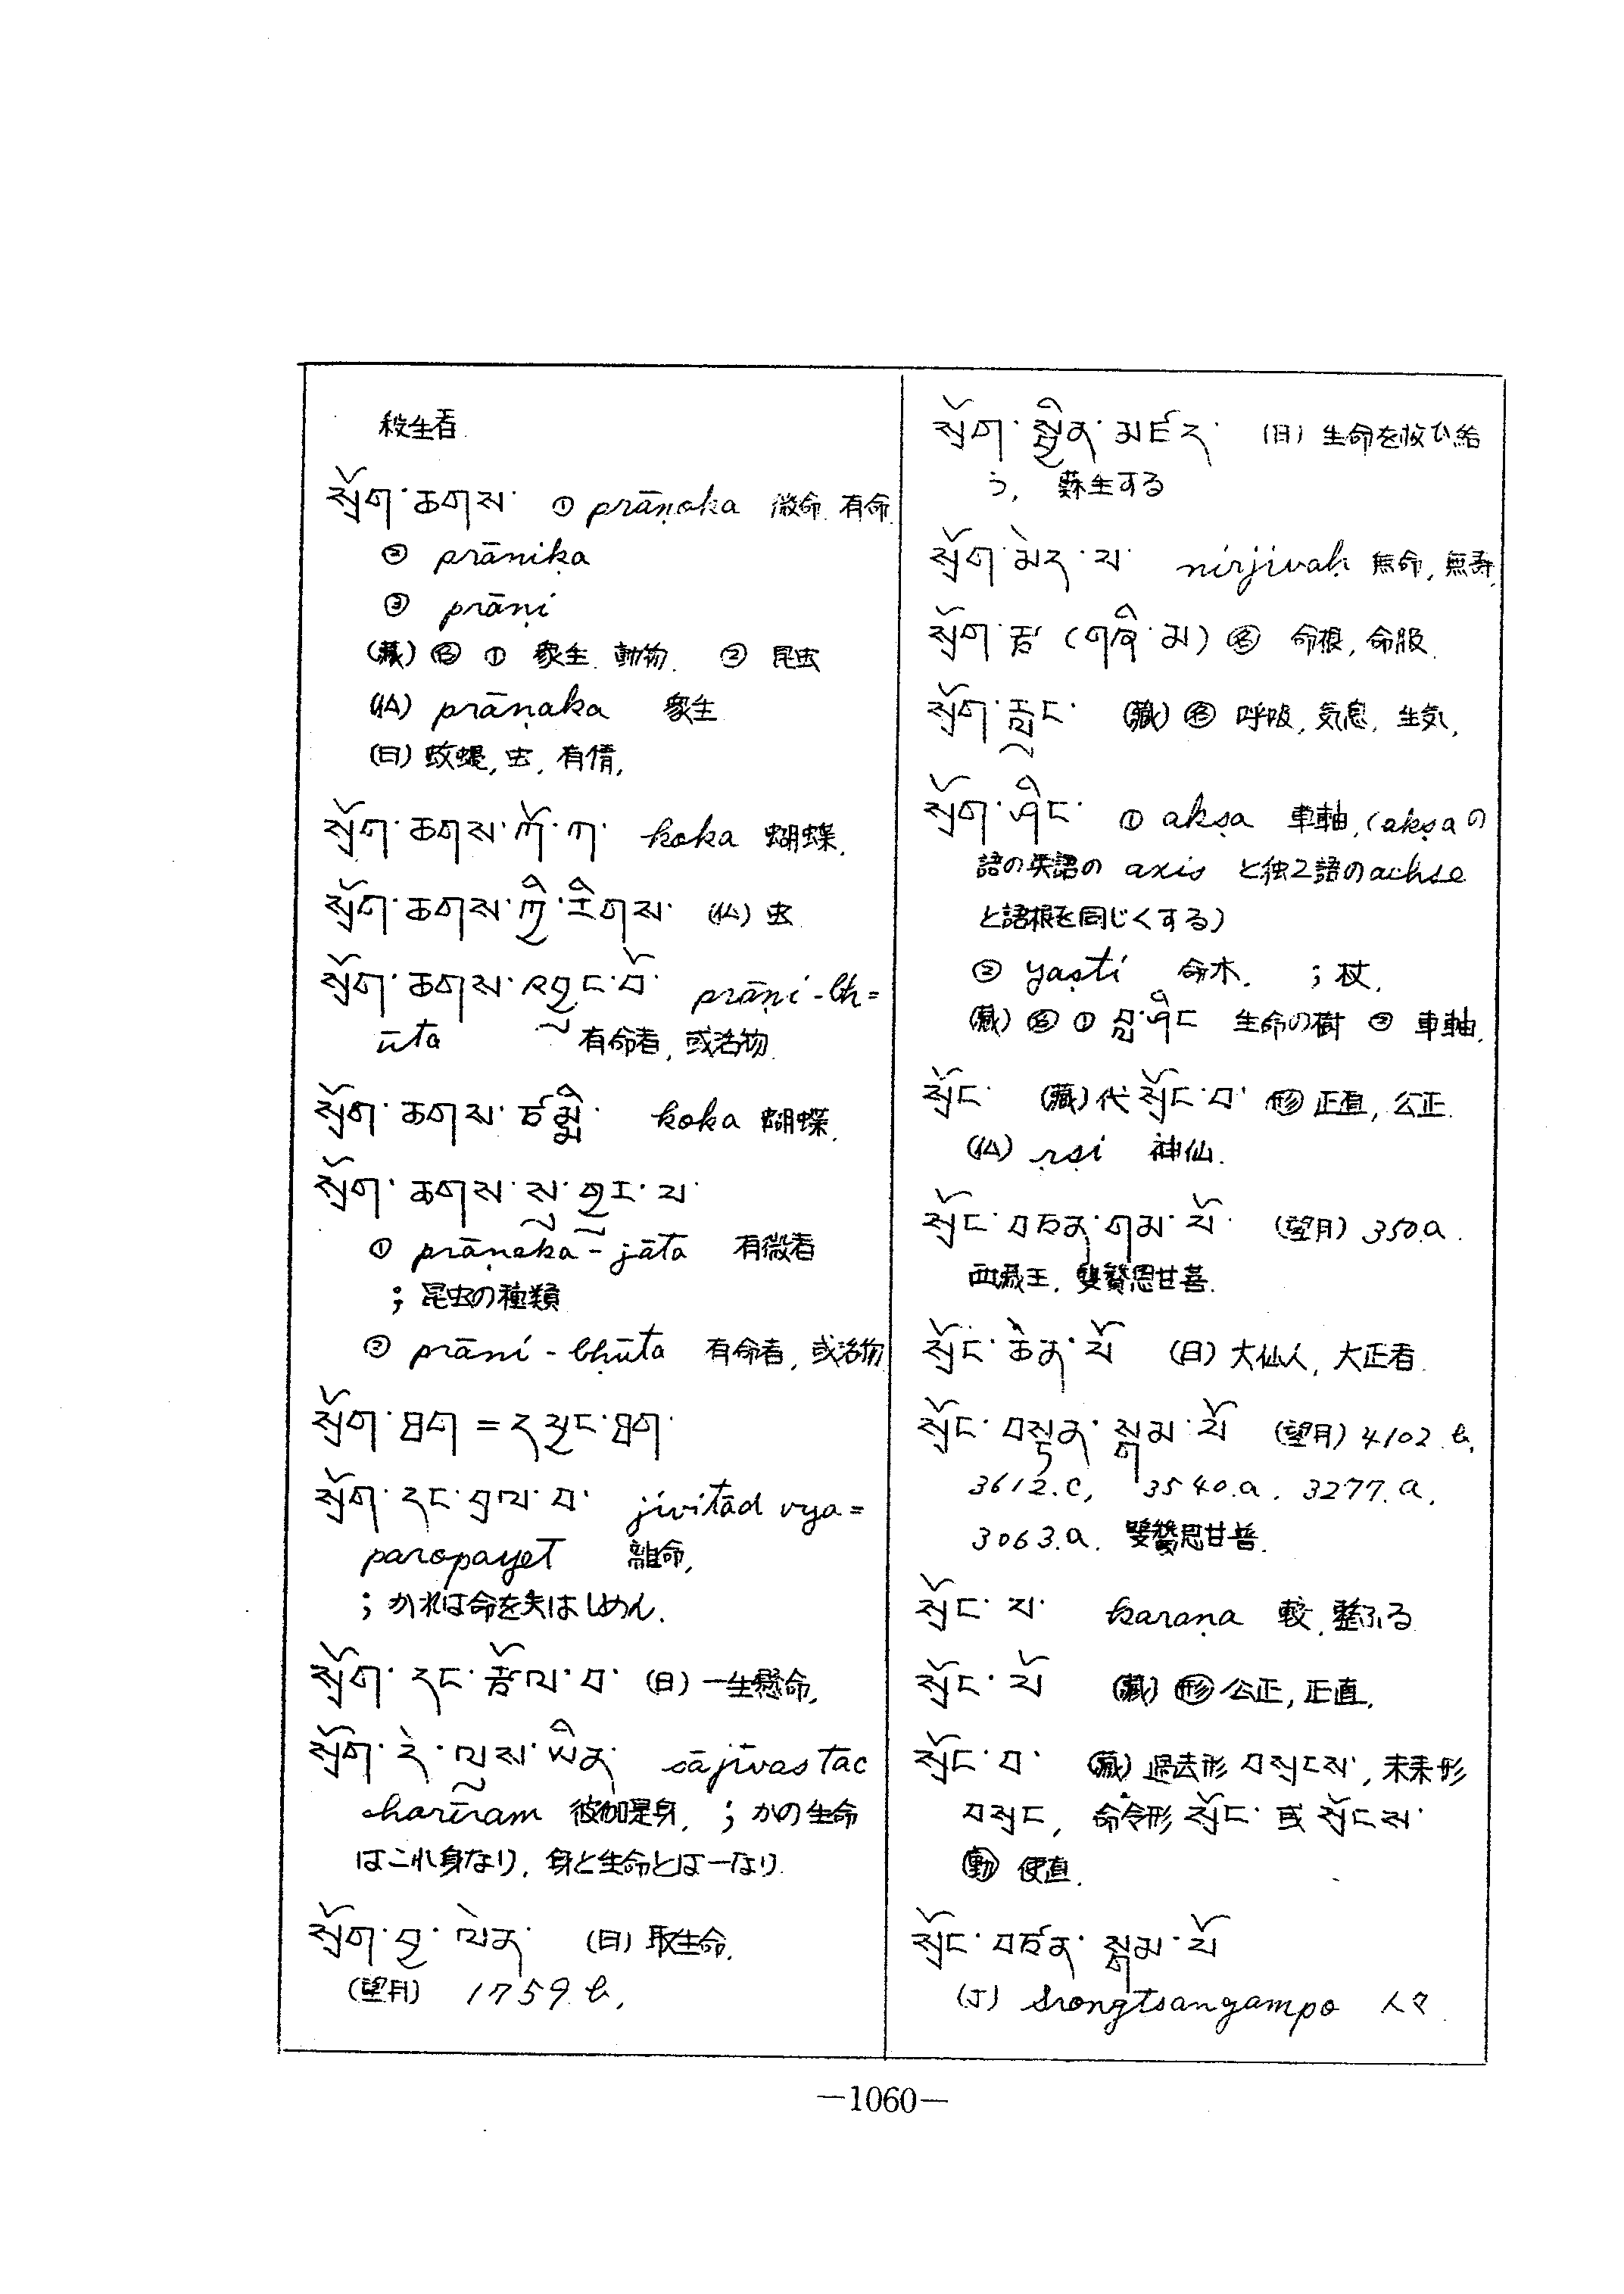 殺生者
སྲོག་ཆགས་ ① prāṇaka 微命. 有命
② prāṇika
③ prāṇi
(藏) 名 ① 衆生. 動物. ② 昆虫
(仏) prāṇaka 衆生
(日) 蚊蝗, 虫, 有情,
སྲོག་ཆགས་ཀོ་ཀ་ koka 蝴蝶.
སྲོག་ཆགས་ཀྱི་རིགས་ (仏) 虫
སྲོག་ཆགས་འབྱུང་པོ་ prāṇi-bh=
ūta 有命者, 或活物.
སྲོག་ཆགས་ koka 蝴蝶.
སྲོག་ཆགས་སུ་གྱུར་པ་
① prāṇaka-jāta 有微者
; 昆虫の種類
② prāṇi-bhūta 有命者, 或活物
སྲོག་ཐག = དམྱང་ཐག་
སྲོག་དང་བྲལ་བ་ jivitād vya=
paropayet 離命,
; かれは命を失はしめん.
སྲོག་དང་སྡོལ་བ་ (日) 一生懸命,
སྲོག་དེ་ལུས་ཡིན་ sājīvas tac
charīram 彼命是身. ; かの生命
はこれ身なり, 身と生命とは一なり.
སྲོག་བྱ་ལེན་ (日) 取生命.
(望月) 1759.b.
སྲོག་སྦྱིན་མཛད་ (日) 生命を救ひ給
う, 蘇生する
སྲོག་མེད་པ་ nirjivaḥ 無命, 無寿,
སྲོག་རྩ་ (གཞི་མ) 名 命根, 命脈.
སྲོག་རླུང་ (藏) 名 呼吸, 気息, 生気,
སྲོག་ཤིང་ ① akṣa 車軸, (akṣaの
語の英語の axis と独乙語のachse
と語根を同じくする)
② yaṣti 命木. ; 杖.
(藏) 名 ① བླ་ཤིང 生命の樹 ② 車軸.
སྲོང་ (藏) 代 སྲོང་བ་ 形 正直, 公正.
(仏) ṛṣi 神仙.
སྲོང་བཙན་གམ་པོ་ (望月) 350.a.
西蔵王, 雙賛思甘菩.
སྲོང་ཆེན་པོ (日) 大仙人, 大正者.
སྲོང་བསྟན་སྒམ་པོ (望月) 4102.b,
3612.c, 3540.a. 3277.a.
3063.a. 雙賛思甘普.
སྲོང་པ་ karaṇa 較, 整ふる
སྲོང་པོ (藏) 形 公正, 正直,
སྲོང་བ་ (藏) 過去形 བསྲངས་, 未来形
བསྲང, 命令形 སྲོང་ 或 སྲོངས་
動 使直.
སྲོང་བཙན་སྒམ་པོ
(J) Srongtsangampo 人々.
—1060—